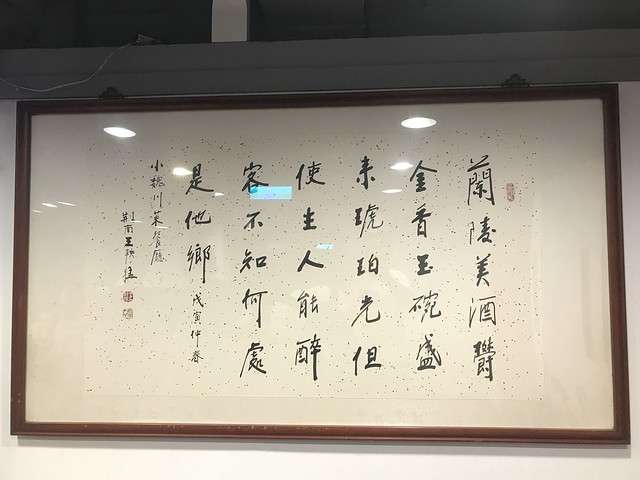 蘭陵美酒鬱
金香玉碗盛
来琥珀光但
使主人能醉
客不知何處
是他鄉 戊寅仲春
小魏川菜餐廳
荆南王